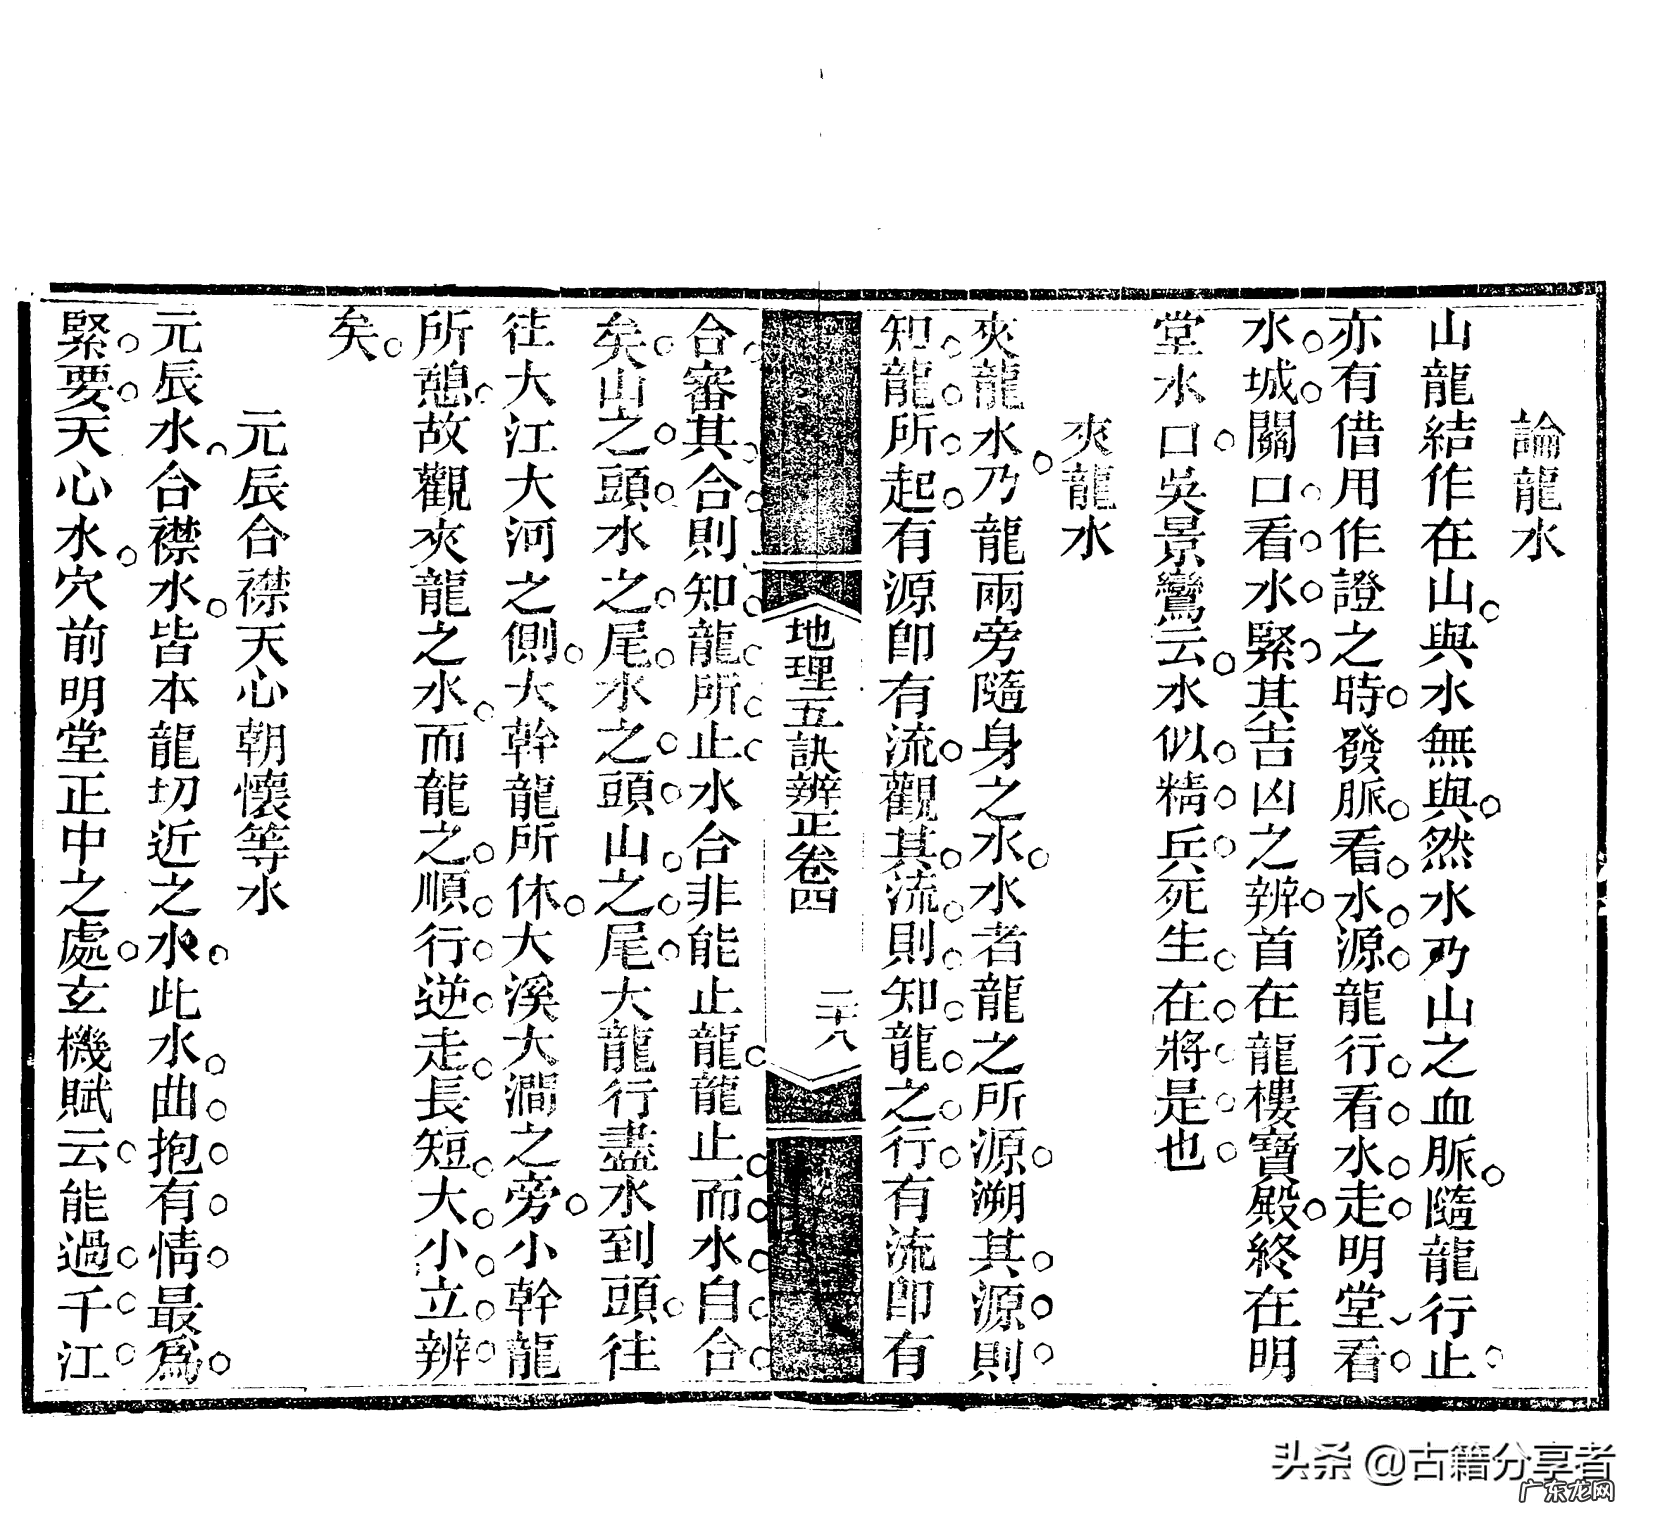 論龍水
山龍結作在山與水無與然水乃山之血脈隨龍行止
亦有借用作證之時發脈看水源龍行看水走明堂看
水城關口看水緊其吉凶之辨首在龍樓寶殿終在明
堂水口吳景鸞云水似精兵死生在將是也
夾龍水
夾龍水乃龍兩旁隨身之水水者龍之所源溯其源則
知龍所起有源卽有流觀其流則知龍之行有流卽有
地理五訣辨正卷四
二十八
合審其合則知龍所止水合非能止龍龍止而水自合
矣山之頭水之尾水之頭山之尾大龍行盡水到頭往
往大江大河之側大幹龍所休大溪大澗之旁小幹龍
所憩故觀夾龍之水而龍之順行逆走長短大小立辨
矣
元辰合襟天心朝懷等水
元辰水合襟水皆本龍切近之水此水曲抱有情最爲
緊要天心水穴前明堂正中之處玄機賦云能過千江
头条 @古籍分享者
广东龙网